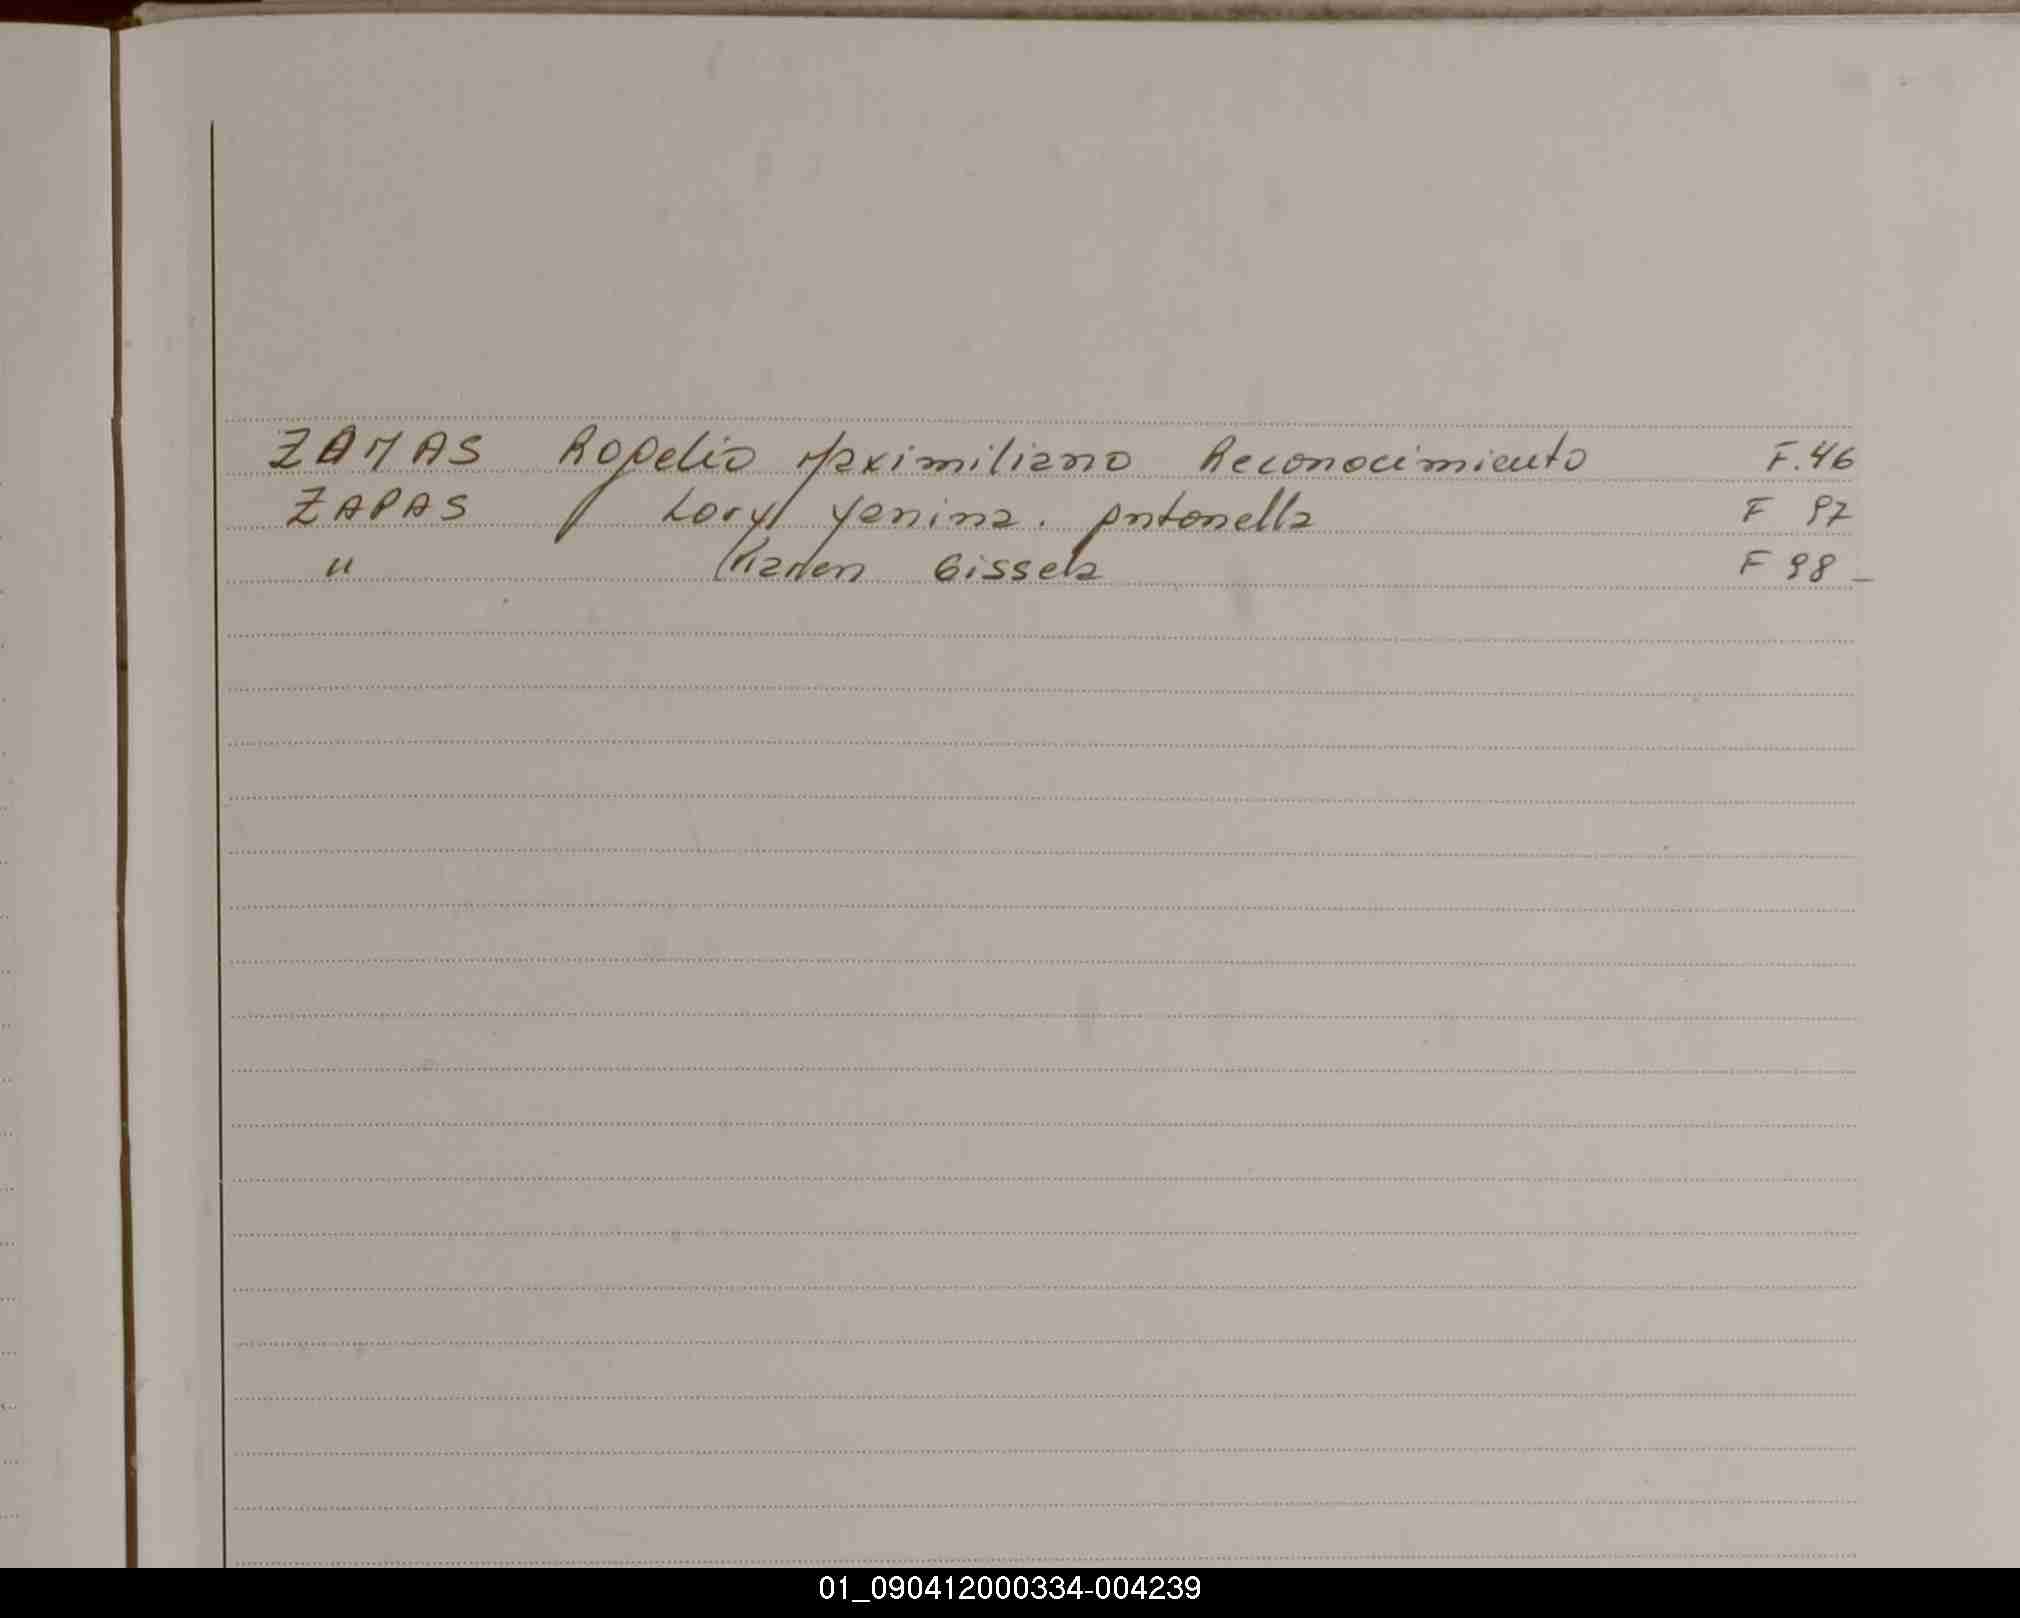 ZAMAS Rogelio Maximiliano Reconocimiento F.46
ZAPAS Lory Yanina. Antonella F 97
" Karen Gissela F 98 _
01_090412000334-004239